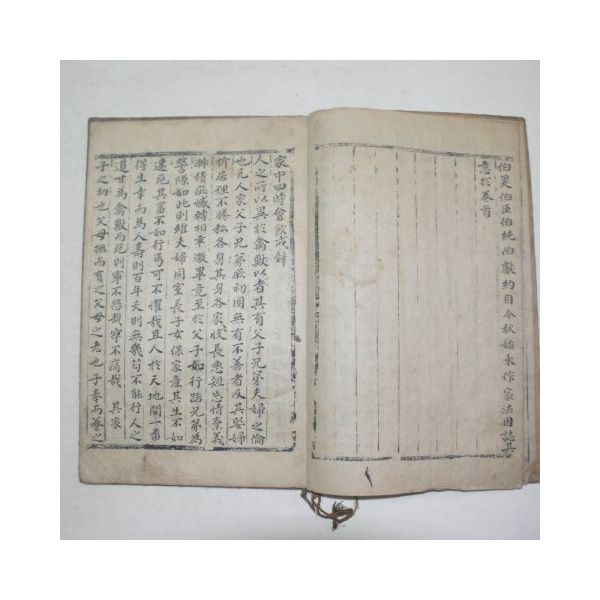 伯昊伯臣伯純伯獻約自今秋始永作家法因誌其
意於卷首
家中四時會飲戒辭
人之所以異於禽獸以者其有父子兄弟夫婦之倫
也凡人家父子兄弟厥初固無有不善者及其娶婦
析居理不勝私各身其身各家 長惡短忘情棄義
漸積疵憾轉相乖激畢竟至於父子如行路兄弟為
讐嫌如此則雖夫婦同室長子女保家產其生不如
速死其富不如行丐可不懼哉且人於天地間一番
得生幸而為人壽則百年夭則無幾苟不能行人之
道甘為禽獸而死則寧不愍哉寧不痛哉 其家
子之初也父母撫而育之父母之老也子孝而養之